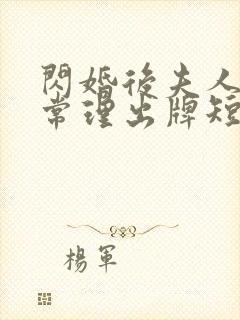 閃婚後夫人
常理出牌短
楊軍